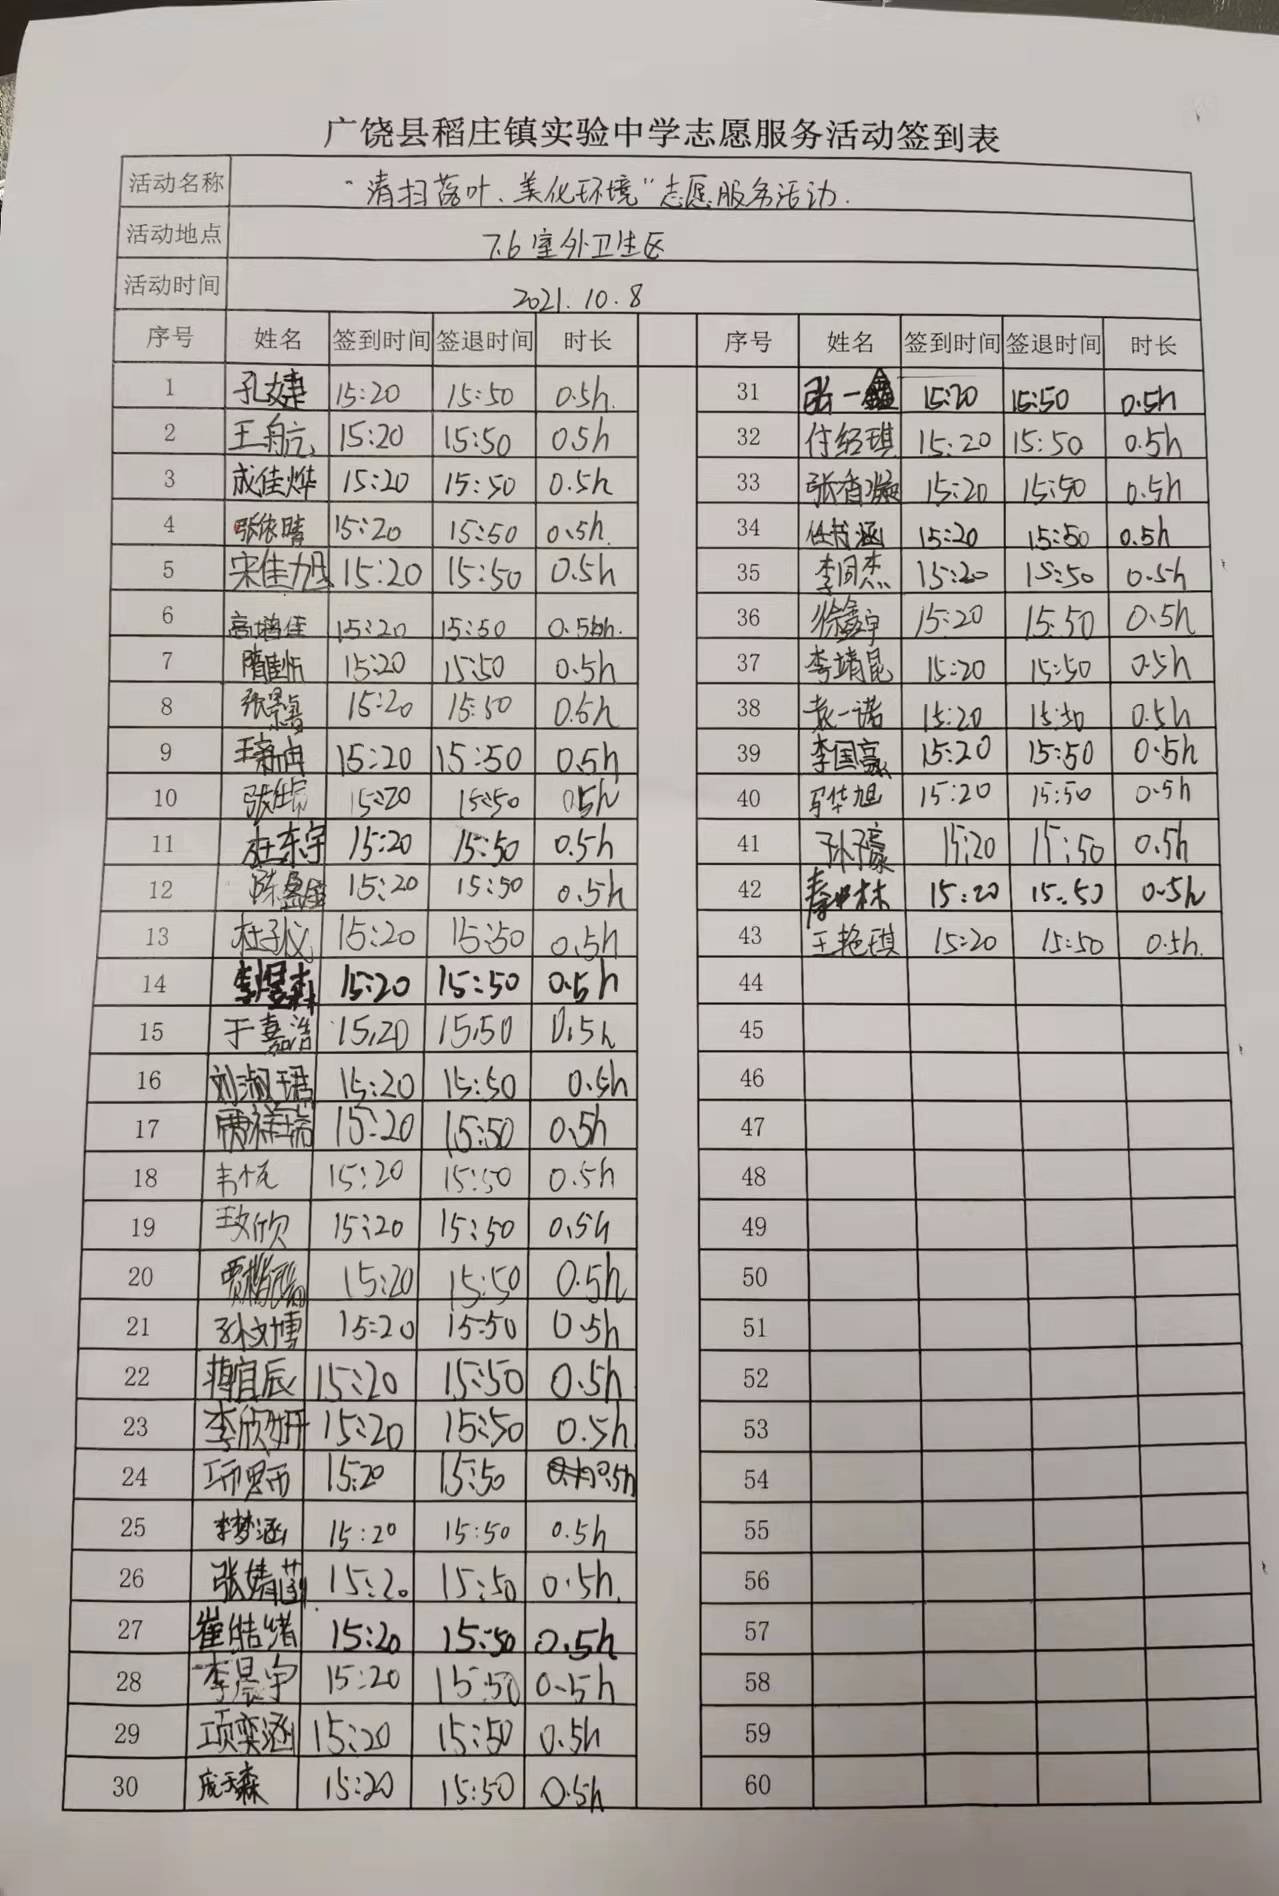 广饶县稻庄镇实验中学志愿服务活动签到表
活动名称 "清扫落叶、美化环境"志愿服务活动.
活动地点 7.6室外卫生区
活动时间 2021.10.8
序号 姓名 签到时间 签退时间 时长 序号 姓名 签到时间 签退时间 时长
1 孔婕 15:20 15:50 0.5h. 31 张一鑫 15:20 15:50 0.5h
2 王航 15:20 15:50 0.5h 32 付绍琪 15:20 15:50 0.5h
3 成佳烨 15:20 15:50 0.5h 33 张香凝 15:20 15:50 0.5h
4 张依晴 15:20 15:50 0.5h. 34 15:20 15:50 0.5h
5 宋佳旭 15:20 15:50 0.5h 35 李同杰 15:20 15:50 0.5h
6 高培佳 15:20 15:50 0.5h. 36 徐鑫宇 15:20 15:50 0.5h
7 隋佳忻 15:20 15:50 0.5h 37 李靖昆 15:20 15:50 0.5h
8 15:20 15:50 0.5h 38 袁一诺 15:20 15:50 0.5h
9 15:20 15:50 0.5h 39 李国豪 15:20 15:50 0.5h
10 15:20 15:50 0.5h 40 华旭 15:20 15:50 0.5h
11 杜东宇 15:20 15:50 0.5h 41 孙子豪 15:20 15:50 0.5h
12 陈盈 15:20 15:50 0.5h 42 秦 林 15:20 15:50 0.5h
13 杜子仪 15:20 15:50 0.5h 43 王艳琪 15:20 15:50 0.5h.
14 李昱森 15:20 15:50 0.5h 44
15 于嘉浩 15:20 15:50 0.5h 45
16 刘淑珺 15:20 15:50 0.5h 46
17 贾祥瑞 15:20 15:50 0.5h 47
18 韦忱 15:20 15:50 0.5h 48
19 王文欣 15:20 15:50 0.5h 49
20 贾 15:20 15:50 0.5h 50
21 孙文博 15:20 15:50 0.5h 51
22 蒋宜辰 15:20 15:50 0.5h 52
23 李欣妍 15:20 15:50 0.5h 53
24 15:20 15:50 0.5h 54
25 李梦涵 15:20 15:50 0.5h 55
26 张婧菡 15:20 15:50 0.5h. 56
27 崔皓绪 15:20 15:50 0.5h 57
28 李晨宇 15:20 15:50 0.5h 58
29 项奕涵 15:20 15:50 0.5h 59
30 成天森 15:20 15:50 0.5h 60